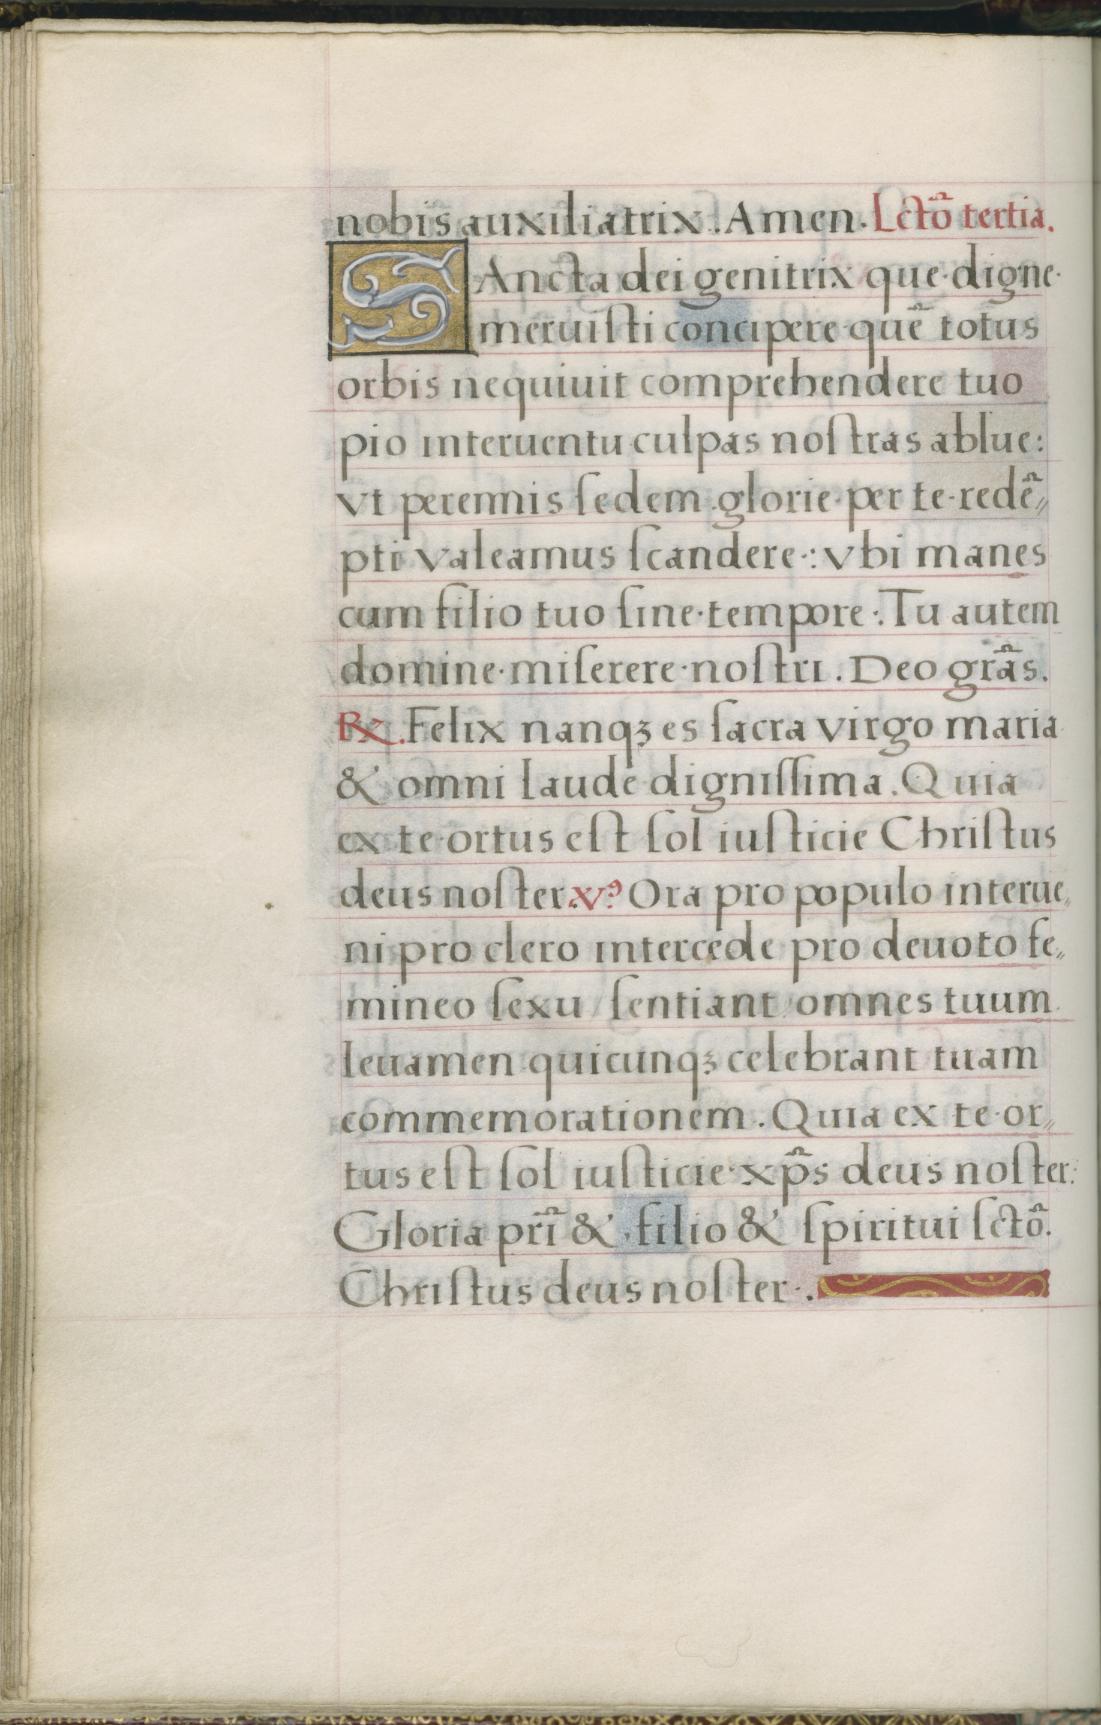 nobis auxiliatrix. Amen. Lctõ tertia.
SAncta dei genitrix que digne
meruiſti concipere quē totus
orbis nequiuit comprehendere tuo
pio interuentu culpas noſtras ablue:
vt perennis ſedem glorie per te redē„
pti valeamus ſcandere: vbi manes
cum filio tuo ſine tempore. Tu autem
domine miſerere noſtri. Deo grãs.
℟. Felix nanqꝫ es ſacra virgo maria
& omni laude digniſſima. Quia
ex te ortus eſt ſol iuſticie Chriſtus
deus noſter. ꝟꝰ Ora pro populo interue„
ni pro clero intercede pro deuoto fe„
mineo ſexu / ſentiant omnes tuum
leuamen quicunqꝫ celebrant tuam
commemorationem. Quia ex te or„
tus eſt ſol iuſticie xp̃s deus noſter:
Gloria pr̃i & filio & ſpiritui ſctõ.
Chriſtus deus noſter.